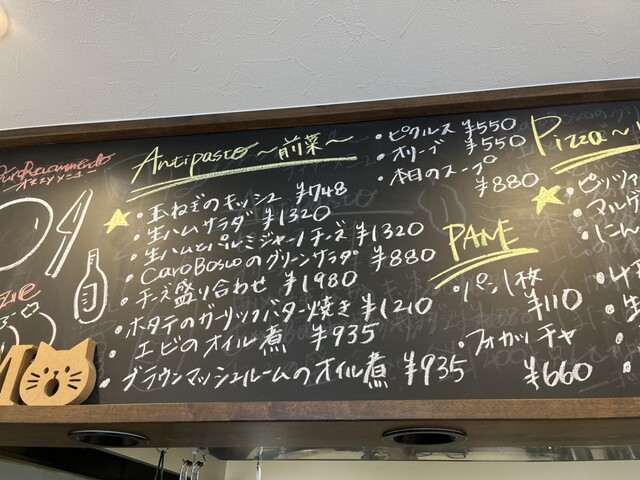 オススメメニュー
Antipasto 〜前菜〜
・玉ねぎのキッシュ ¥748
・生ハムサラダ ¥1320
・生ハムとパルミジャーノチーズ ¥1320
・CaroBoscoのグリーンサラダ ¥880
・チーズ盛り合わせ ¥1980
・ホタテのガーリックバター焼き ¥1210
・エビのオイル煮 ¥935
・ブラウンマッシュルームのオイル煮 ¥935
・ピクルス ¥550
・オリーブ ¥550
・本日のスープ
¥880
PANE
・パン1枚
¥110
・フォカッチャ
¥660
Pizza〜
・ピッツァ
・マルゲ
・にん